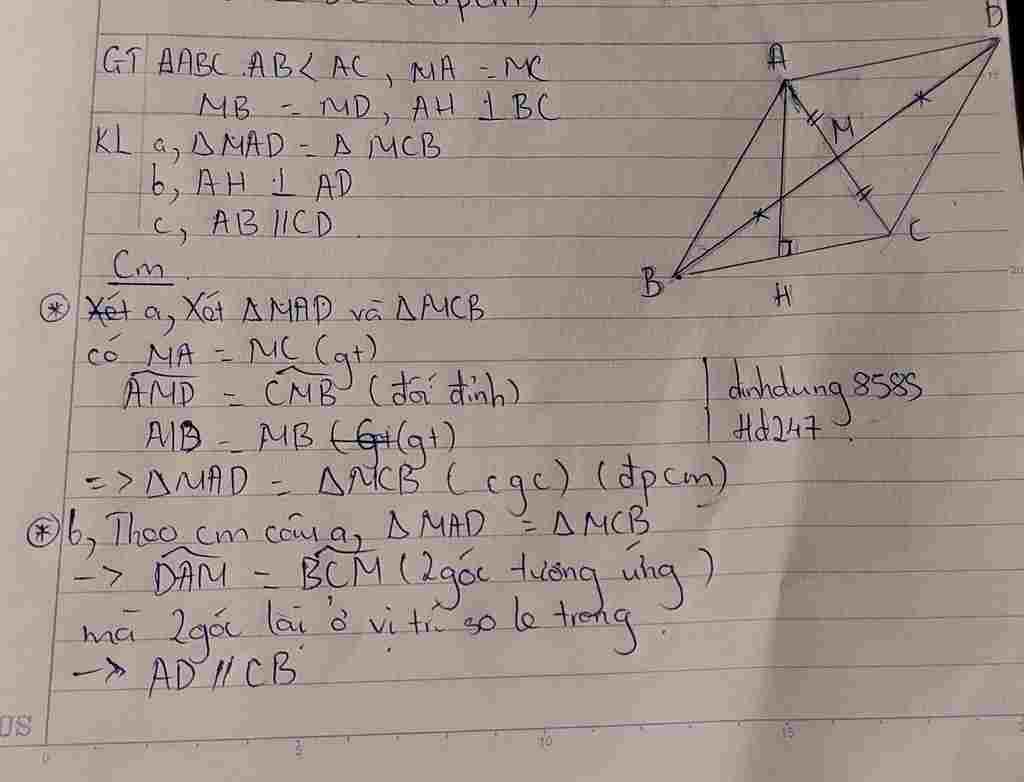 (đpcm)
GT ΔABC. AB < AC, MA = MC
MB = MD, AH ⊥ BC
KL a, ΔMAD = Δ MCB
b, AH ⊥ AD
c, AB // CD
Cm
* Xét a, Xét ΔMAD và ΔMCB
có MA = MC (gt)
AMD = CMB (đối đỉnh)
MB (gt)
=> ΔMAD = ΔMCB (cgc) (đpcm)
* b, Theo cm câu a, ΔMAD = ΔMCB
-> DAM = BCM (2 góc tương ứng)
mà 2 góc lại ở vị trí so le trong.
-> AD // CB
A
D
M
B
H
C
dinhdung8585
Hd247
0
5
10
15
15
20